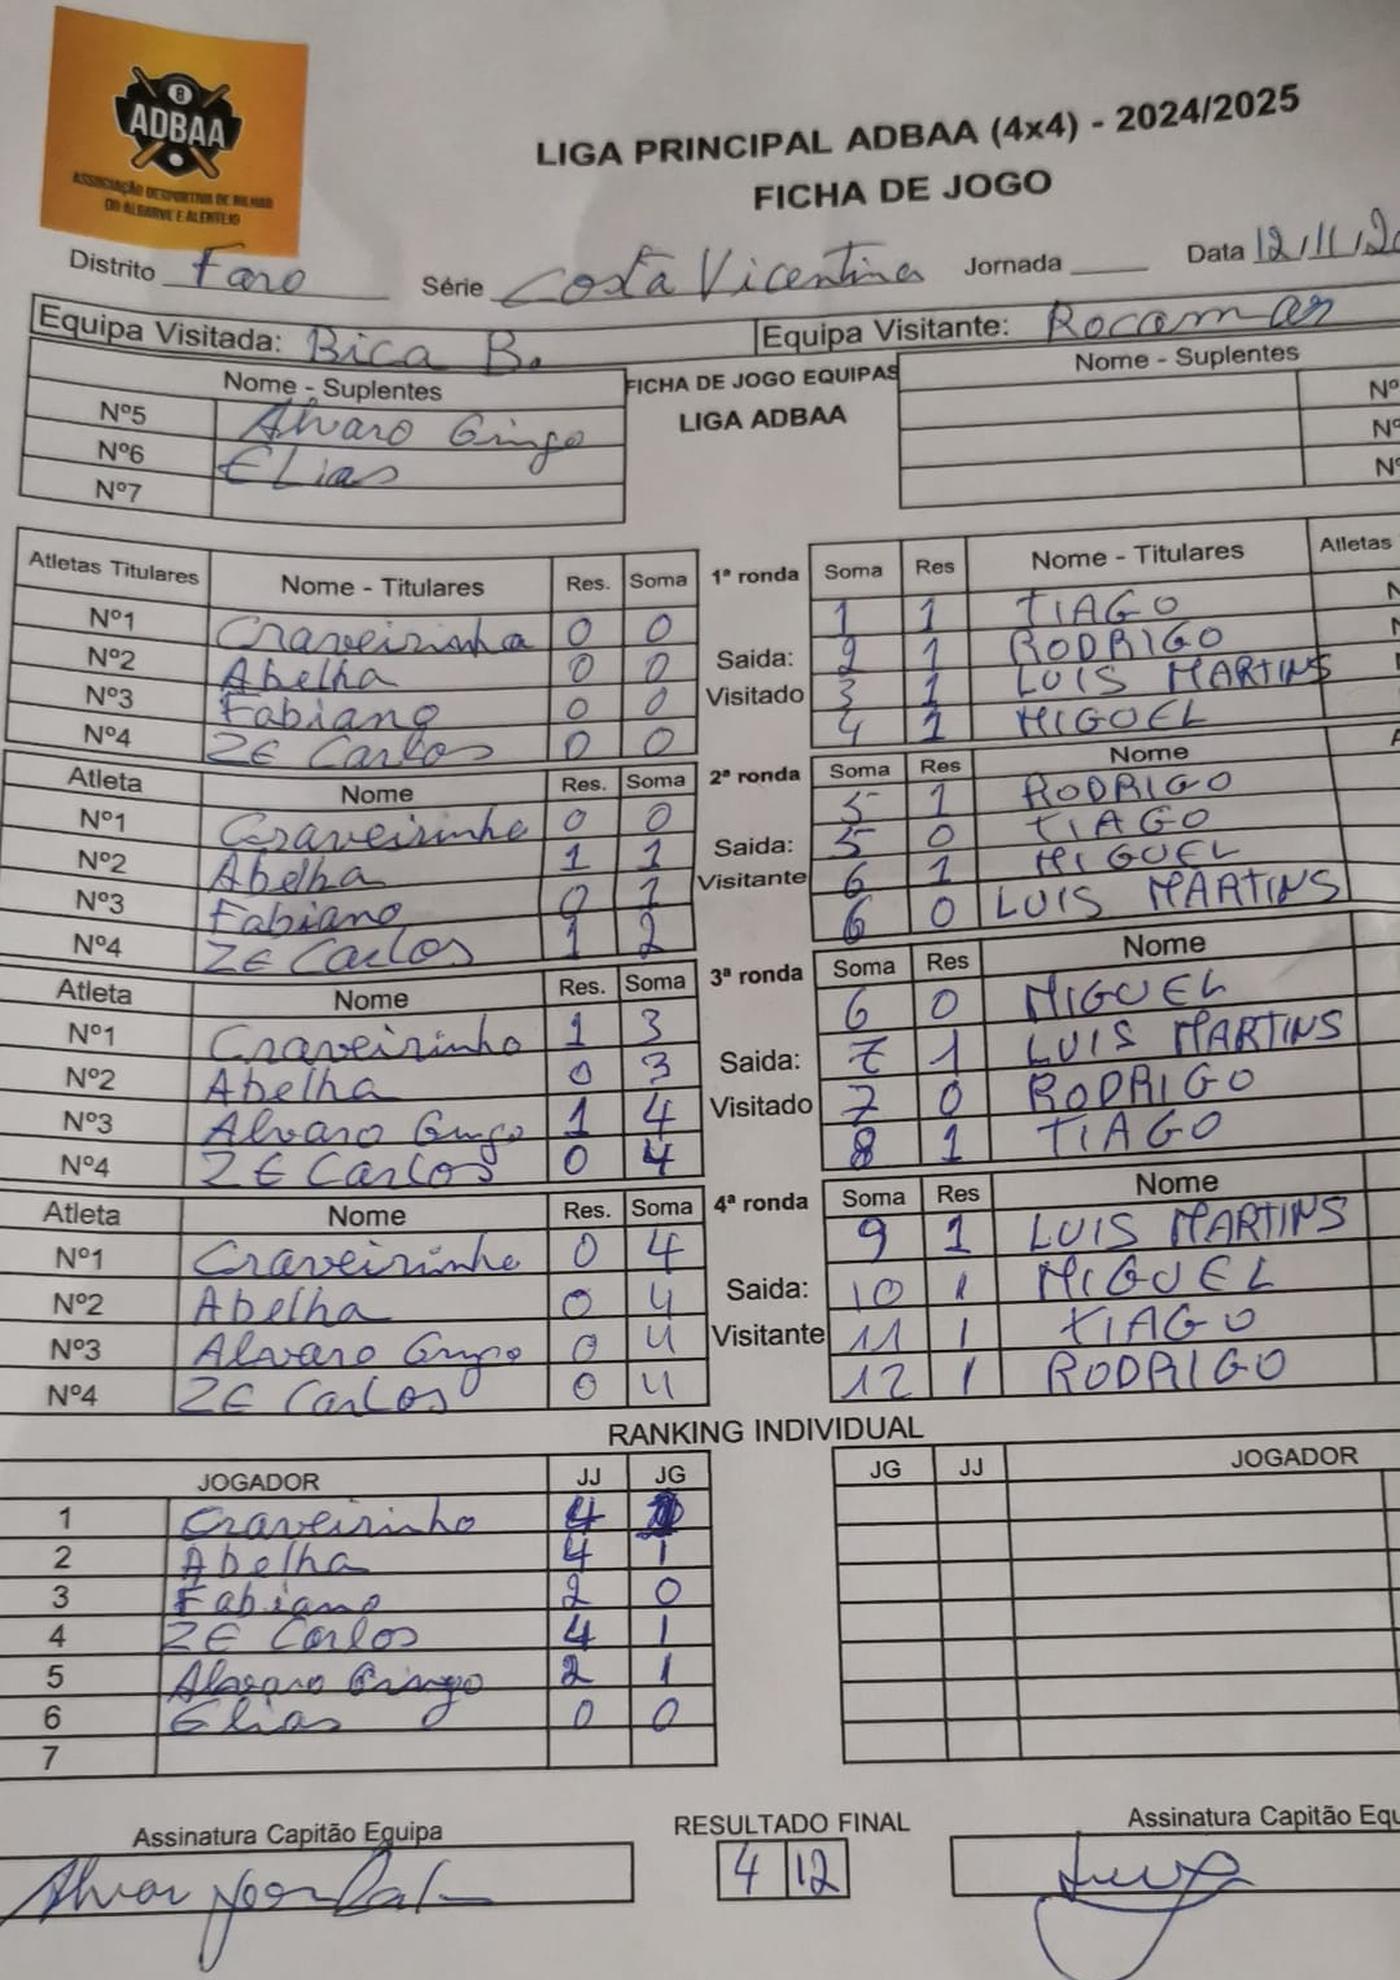 8
ADBAA
ASSOCIAÇÃO DESPORTIVA DE BILHAR
DO ALGARVE E ALENTEJO
LIGA PRINCIPAL ADBAA (4x4) - 2024/2025
FICHA DE JOGO
Distrito Faro Série Costa Vicentina Jornada ____ Data 12/11/2
Equipa Visitada: Bica B. Equipa Visitante: Rocamar
Nome - Suplentes FICHA DE JOGO EQUIPAS Nome - Suplentes
Nº5 Alvaro Gringo LIGA ADBAA Nº
Nº6 Elias Nº
Nº7 Nº
Atletas Titulares Nome - Titulares Res. Soma 1ª ronda Soma Res Nome - Titulares Atletas
Nº1 Craveirinha 0 0 1 1 TIAGO N
Nº2 Abelha 0 0 Saida: 2 1 RODRIGO N
Nº3 Fabiano 0 0 Visitado 3 1 LUIS MARTINS
Nº4 ZE Carlos 0 0 4 1 MIGUEL
Atleta Nome Res. Soma 2ª ronda Soma Res Nome A
Nº1 Craveirinho 0 0 5 1 RODRIGO
Nº2 Abelha 1 1 Saida: 5 0 TIAGO
Nº3 Fabiano 0 1 Visitante 6 1 MIGUEL
Nº4 ZE Carlos 1 2 6 0 LUIS MARTINS
Atleta Nome Res. Soma 3ª ronda Soma Res Nome
Nº1 Craveirinho 1 3 6 0 MIGUEL
Nº2 Abelha 0 3 Saida: 7 1 LUIS MARTINS
Nº3 Alvaro Gringo 1 4 Visitado 7 0 RODRIGO
Nº4 ZE Carlos 0 4 8 1 TIAGO
Atleta Nome Res. Soma 4ª ronda Soma Res Nome
Nº1 Craveirinho 0 4 9 1 LUIS MARTINS
Nº2 Abelha 0 4 Saida: 10 1 MIGUEL
Nº3 Alvaro Gringo 0 4 Visitante 11 1 TIAGO
Nº4 ZE Carlos 0 4 12 1 RODRIGO
RANKING INDIVIDUAL
JOGADOR JJ JG JG JJ JOGADOR
1 Craveirinho 4
2 Abelha 4 1
3 Fabiano 2 0
4 ZE Carlos 4 1
5 Alvaro Gringo 2 1
6 Elias 0 0
7
Assinatura Capitão Equipa RESULTADO FINAL Assinatura Capitão Equ
4 12